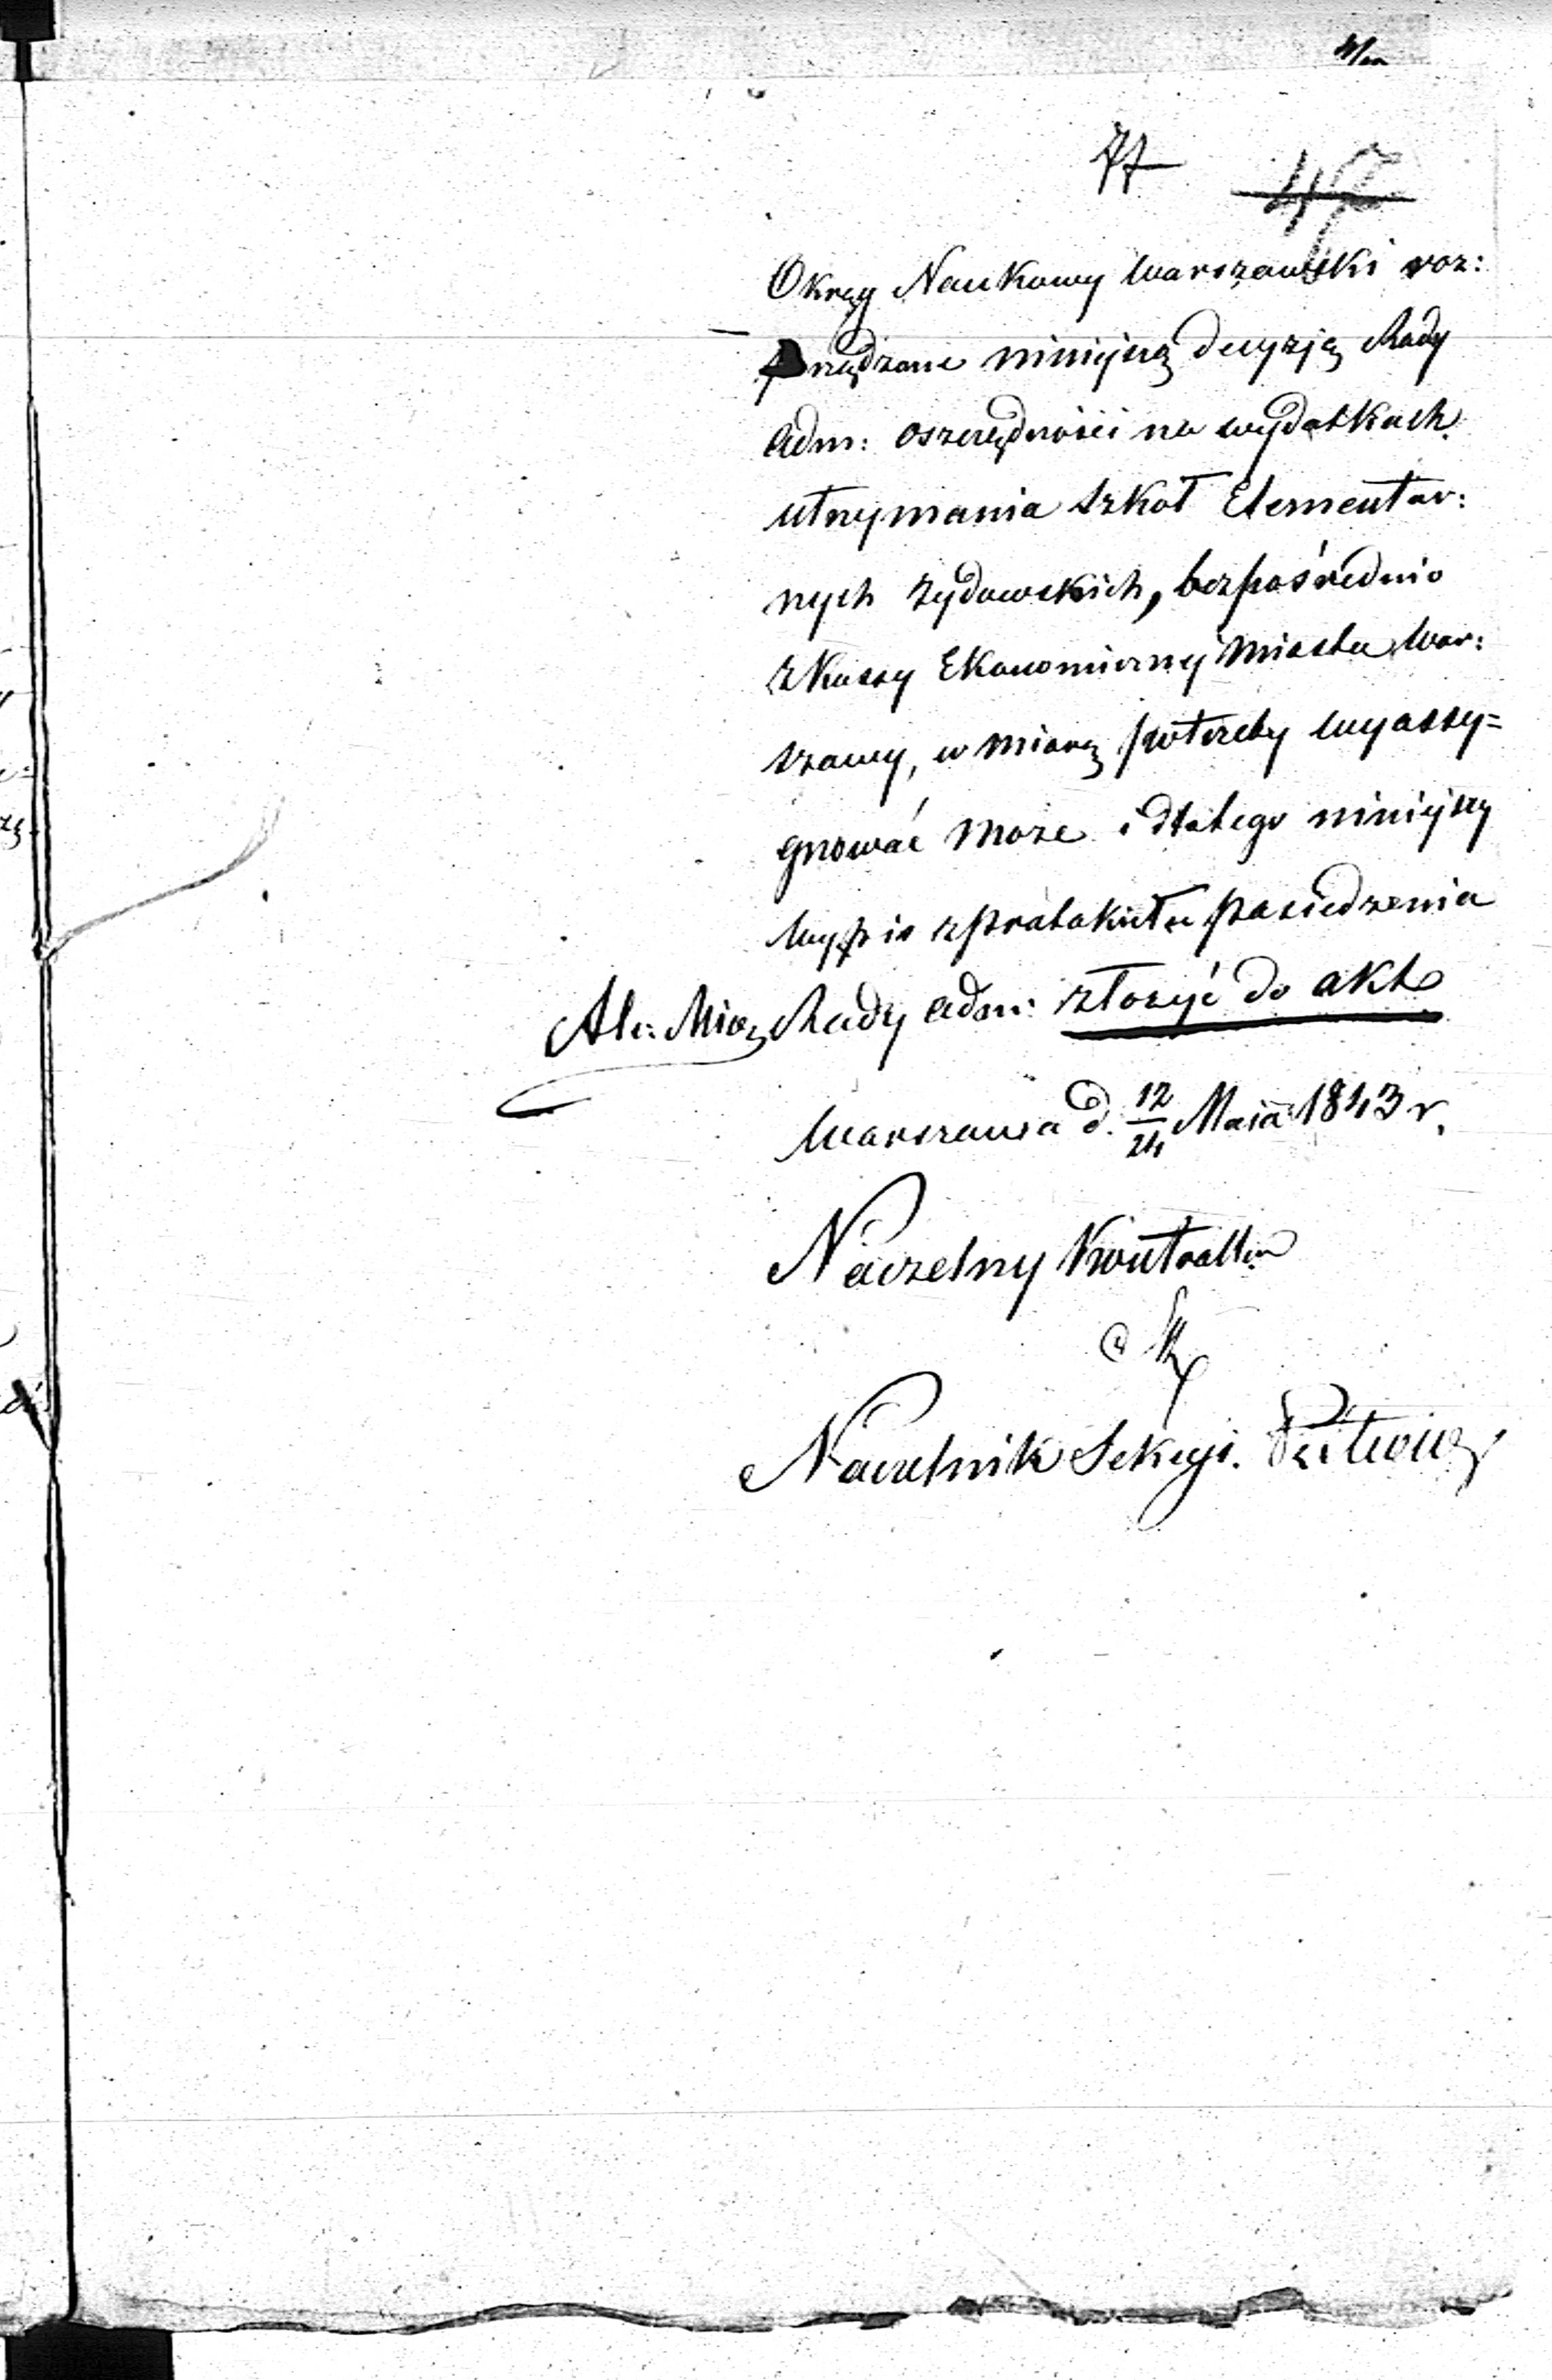 77 47
Okręg Naukowy Warszawski roz:
rządzone niniejszą decyzją Rady
Adm: oszczędności na wydatkach
utrzymania Szkół Elementar:
nych Żydowskich, bezpośrednio
z Kassy Ekonomicznej Miasta War:
szawy, w miarę potrzeby wyassy=
gnować może i dlatego niniejszy
Wypis z protokułu posiedzenia
Rady Adm: złożyć do akt
Warszawa d. 12/24 Maja 1843 r.
Naczelny Kontroller
Naczelnik Sekcyi.